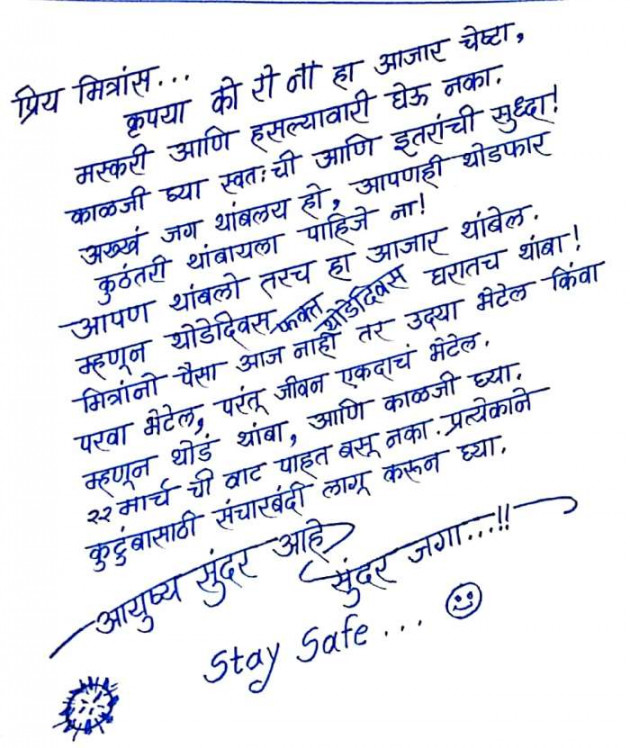 प्रिय मित्रांस...
कृपया को रो ना हा आजार चेष्टा,
मस्करी आणि हसल्यावारी घेऊ नका.
काळजी घ्या स्वतःची आणि इतरांची सुध्दा!
अख्खं जग थांबलय हो, आपणही थोडफार
कुठंतरी थांबायला पाहिजे ना!
आपण थांबलो तरच हा आजार थांबेल.
म्हणून थोडेदिवस फक्त थोडेदिवस घरातच थांबा!
मित्रांनो पैसा आज नाही तर उद्या भेटेल किंवा
परवा भेटेल, परंतू जीवन एकदाचं भेटेल.
म्हणून थोडं थांबा, आणि काळजी घ्या.
२२ मार्च ची वाट पाहत बसू नका. प्रत्येकाने
कुटुंबासाठी संचारबंदी लागू करून घ्या.
आयुष्य सुंदर आहे
सुंदर जगा...!!
Stay Safe...